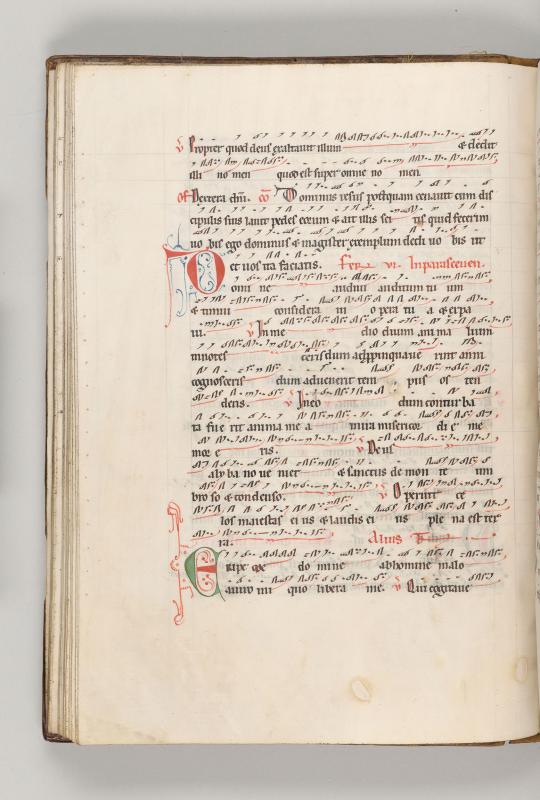 v Propter quod deus exaltauit illum & dedit
illi no men quod est super omne no men.
of Dextera dñi. co Dominus ihesus postquam cenauit cum dis
cipulis suis lauit pedes eorum & ait illis sci tis quid fecerim
uo bis ego dominus & magister exemplum dedi uo bis ut
et uos ita faciatis. fer vi. In parasceuen.
Domi ne audiui auditum tu um
& timui consideraui opera tu a & expa
ui. v In me dio duum anima lium
innotes ceris dum appropinquaue rint anni
cognosceris dum aduenerit tem pus os ten
deris. v In eo dum conturba
ta fue rit anima me a in ira misericor di e me
mor e ris. v Deus
a lybano ue niet & sanctus de mon te um
bro so & condenso. v Operuit ce
los maiestas ei us & laudis ei us ple na est ter
ra. Alius
Eripe me do mine ab homine malo
a uiro ini quo libera me. v Qui cogitaue